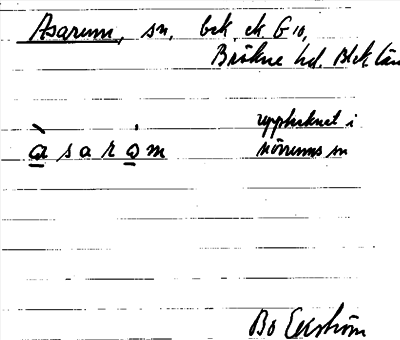 Asarum, sn. bek. ek. G 10,
Bräkne hd. Blek. län
upptecknat i
àsaròm
Mörrums sn
Bo Ekström